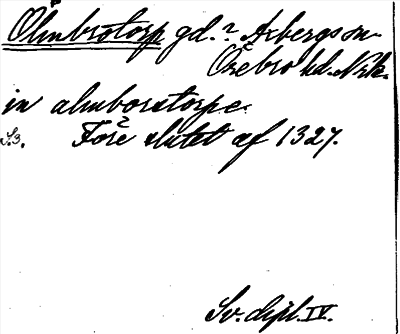 Ölmbrotorp gd.? Axbergs sn.
Örebro hd. Nrk.
in almborstorpe.
S3. Före slutet af 1327.
Sv. dipl. IV.